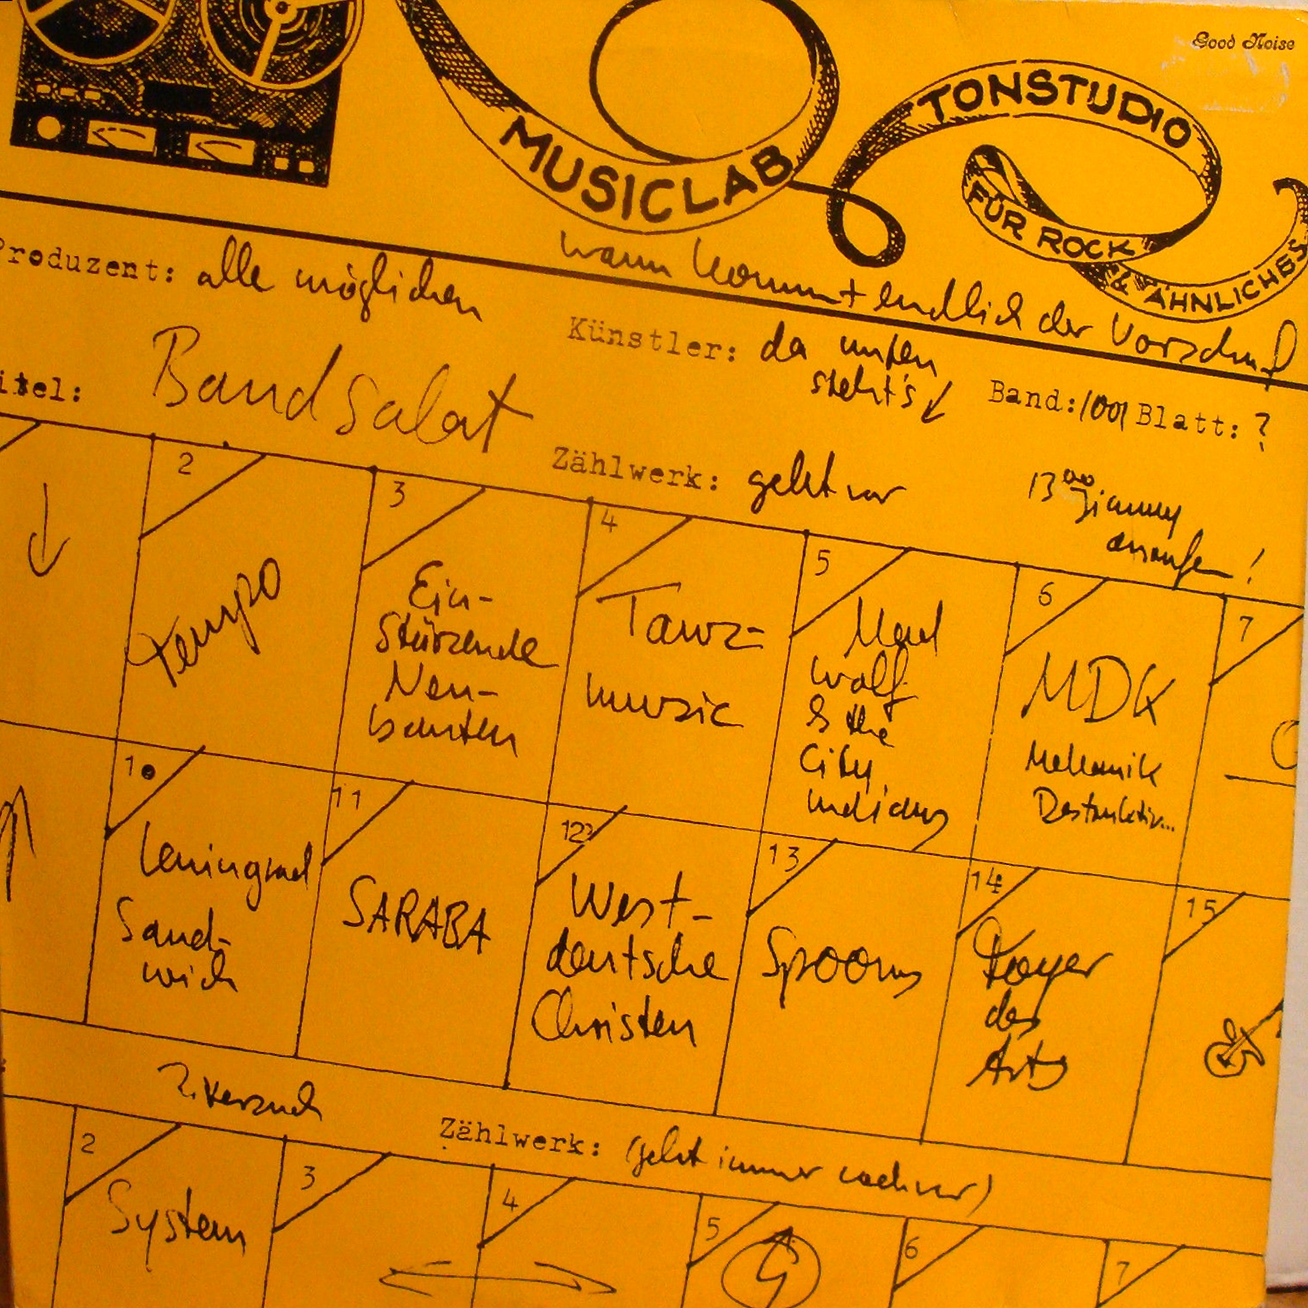 Good Noise
MUSICLAB
TONSTUDIO
FÜR ROCK
& ÄHNLICHES
wann kommt endlich der Vorschuß
Produzent: alle möglichen
Künstler: da unten
steht's
Band: 1001 Blatt: ?
Titel: Bandsalat
Zählwerk: geht vor
13 00 Jimmy
anrufen!
2
Tempo
3
Ein-
stürzende
Neu-
bauten
4
Tanz-
music
5
Mad
Wolf
& the
City
Indians
6
MDK
Mekanik
Destruktiw...
7
10
Leningrad
Sand-
wich
11
SARABA
12
West-
deutsche
Christen
13
Spoons
14
Foyer
des
Arts
15
2. Versuch
Zählwerk: (geht immer noch vor)
2
System
3
4
5
6
7